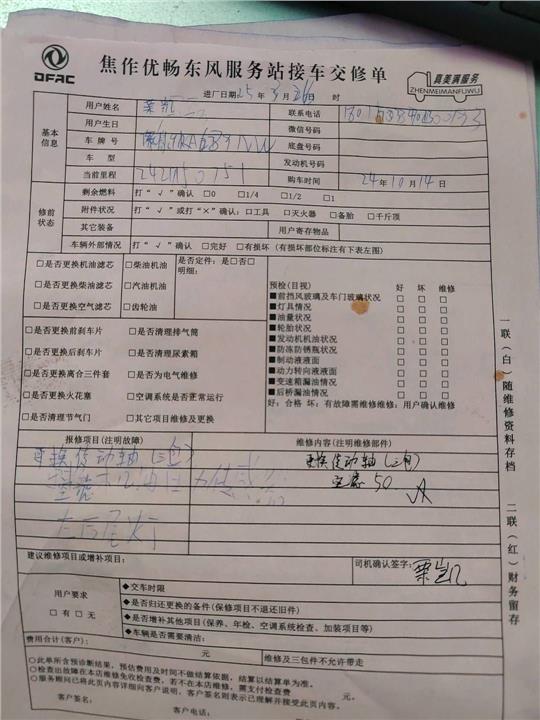 DFAC
焦作优畅东风服务站接车交修单
真美满服务
ZHENMEIMANFUWU
进厂日期25年3月26日 时
基本信息
用户姓名 联系电话
用户生日 微信号码
车牌号 底盘号码
车型 发动机号码
当前里程 购车时间 24年10月14日
修前状态
剩余燃料 打“√”确认 □0 □1/4 □1/2 □1
附件状况 打“√”或打“×”确认:□工具 □灭火器 □备胎 □千斤顶
其它装备 用户寄存物品
车辆外部情况 打“√”确认 □完好 □有损坏(有损坏部位标注有下表左图)
□是否更换机油滤芯 □柴油机油 是否定件:是□否□
明细:
□是否更换柴油滤芯 □汽油机油
□是否更换空气滤芯 □齿轮油
□是否更换前刹车片 □是否清理排气筒
□是否更换后刹车片 □是否清理尿素箱
□是否更换离合三件套 □是否为电气维修
□是否更换火花塞 □空调系统是否正常运行
□是否清理节气门 □其它项目维修及更换
预检(目视) 好 坏 维修
■前挡风玻璃及车门玻璃状况 □ □ □
■灯具情况 □ □ □
■油量状况 □ □ □
■轮胎状况 □ □ □
■发动机机油状况 □ □ □
■防冻防锈瓶状况 □ □ □
■制动液液面 □ □ □
■动力转向液液面 □ □ □
■变速箱漏油情况 □ □ □
■后桥漏油情况 □ □ □
好:合格 坏:有故障需维修维修:用户确认维修
报修项目(注明故障) 维修内容(注明维修部件)
更换传动轴(三包) 更换传动轴(三包)
50
左后尾灯
建议维修项目或增补项目: 司机确认签字:
用户要求
□有□无
◆交车时限
◆是否归还更换的备件(保修项目不退还旧件)
◆是否增补其他项目(保养、年检、空调系统检查、加装项目等)
◆车辆是否需要清洁:
费用合计(客户): 元 维修及三包件不允许带走
○此单所含预诊断结果,预估费用及时间不做结算依据,结算以结算单为准。
○检查出故障在本店维修免收检查费,若不在本店维修,需支付检查费 元。
○服务顾问已将此页内容详细向客户说明,客户签名则表示已理解并接受此页内容。
客户签名: 客户电话:
一联(白)随维修资料存档
二联(红)财务留存